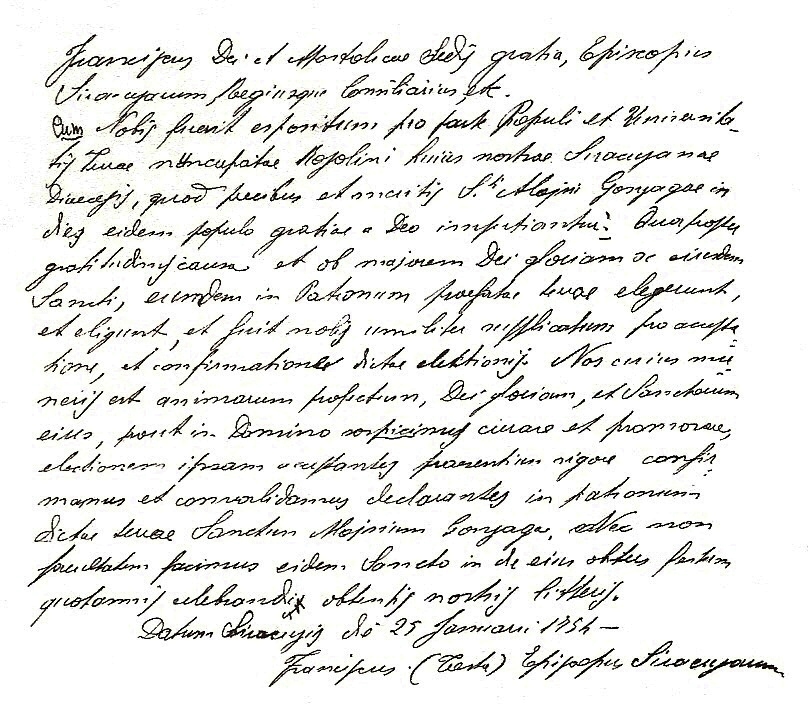 Franciscus Dei et Apostolicae Sedis gratia, Episcopus
Siracusarum, Regiusque Consiliarius, etc.
Cum Nobis fuerit expositum pro parte Populi et Universita-
tis Terrae nuncupatae Rosolini huius nostrae Siracusanae
Diocesis, quod precibus et meritis S.ti Aloysii Gonzagae in
dies eidem populo gratiae a Deo impertiantur: Quapropter
gratitudinis causa et ob majorem Dei gloriam ac eiusdem
Sancti, eumdem in Patronum praefatae terrae elegerunt,
et eligunt, et fuit nobis umiliter supplicatum pro accepta-
tione, et confirmatione dictae elektionis. Nos cuius mu-
neris est animarum profectum, Dei gloriam, et Sanctorum
eius, prout in Domino conspicimus curare et promovere,
electionem ipsam acceptantes praesentium vigore confir-
mamus et convalidamus declarantes in patronum
dictae terrae Sanctum Aloysium Gonzaga, Nec non
facultatem facimus eidem Sancto in die eius obitus festum
quotannis celebrandi obtentis nostris litteris.
Datum Siracusis die 25 Januarii 1754 -
Franciscus (Testa) Episcopus Siracusarum